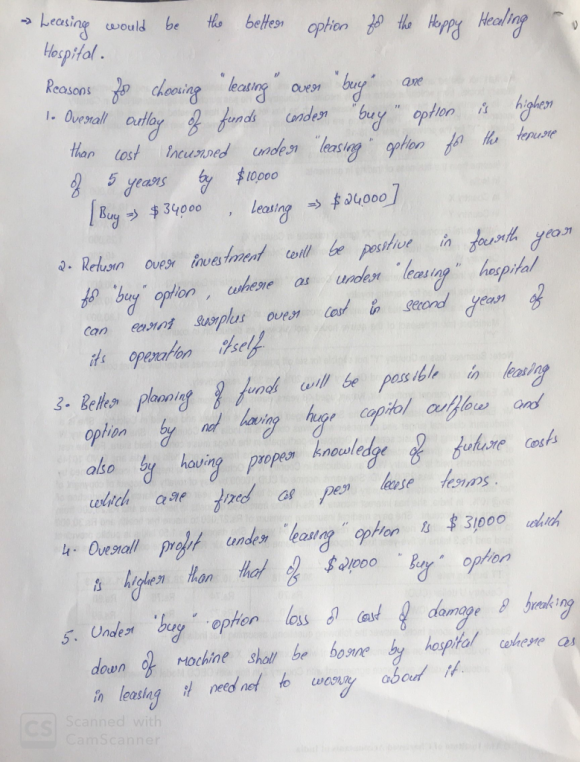 → Leasing would be the better option for the Happy Healing
Hospital.
Reasons for choosing "leasing" over "buy" are
1. Overall outlay of funds under "buy" option is higher
than cost incurred under "leasing" option for the tenure
of 5 years by $10,000
[Buy ⇒ $34000 , Leasing ⇒ $24000]
2. Return over investment will be positive in fourth year
for "buy" option, where as under "leasing" hospital
can earn surplus over cost in second year of
its operation itself
3. Better planning of funds will be possible in leasing
option by not having huge capital outflow and
also by having proper knowledge of future costs
which are fixed as per lease terms.
4. Overall profit under "leasing" option is $31000 which
is higher than that of $21000 "Buy" option
5. Under "buy" option loss or cost of damage or breaking
down of machine shall be borne by hospital where as
in leasing it need not to worry about it.
CS Scanned with
CamScanner